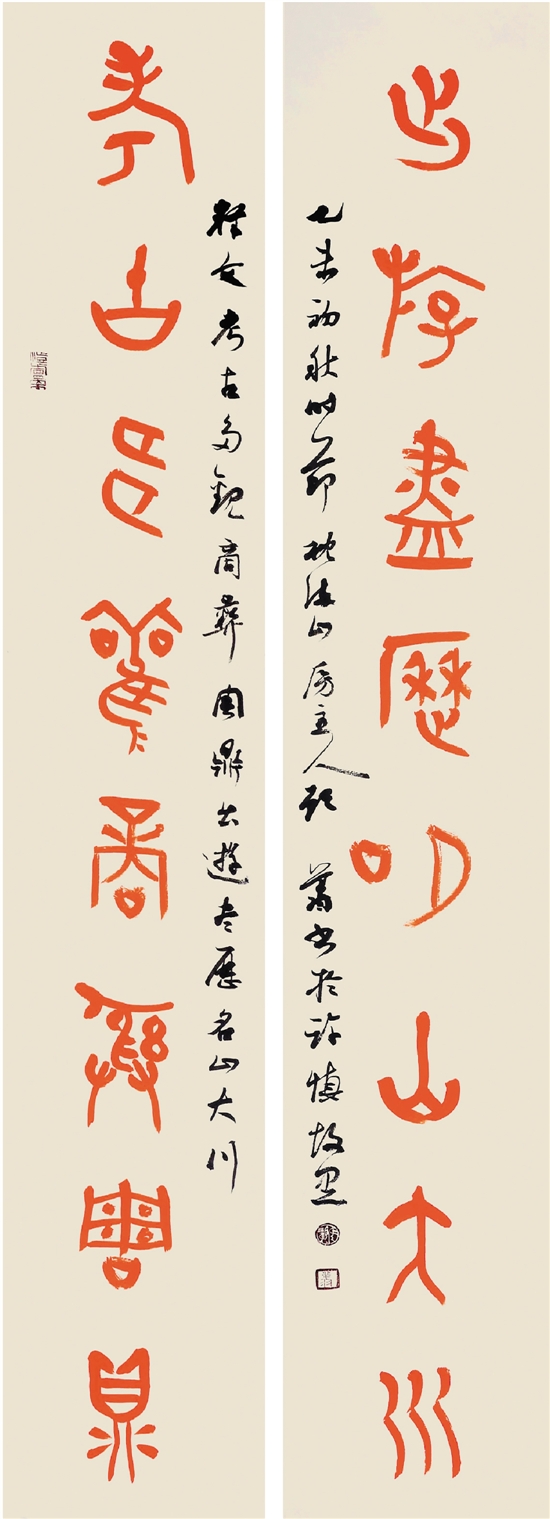 考古多觀商彝周鼎
釋文考古多觀商彝周鼎出遊盡歷名山大川
出游盡歷名山大川
乙未初秋時節枕山房主人書於許慎故里